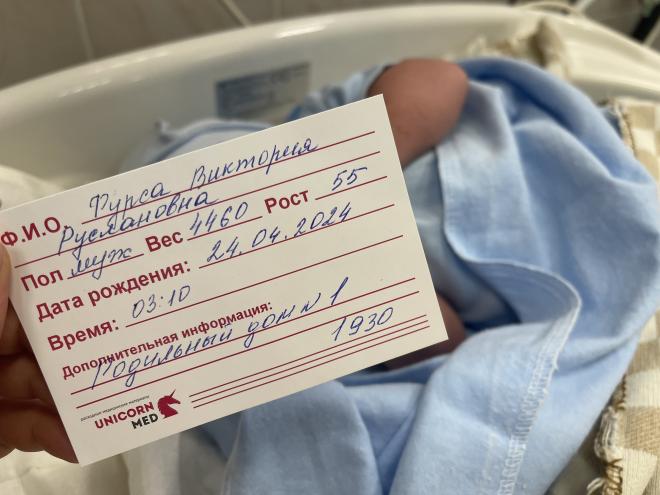 Ф.И.О. Фурса Виктория
Руслановна
Пол муж Вес 4460 Рост 55
Дата рождения: 24.04.2024
Время: 03:10
Дополнительная информация:
Родильный дом N 1
1930
расходные медицинские материалы
UNICORN
MED